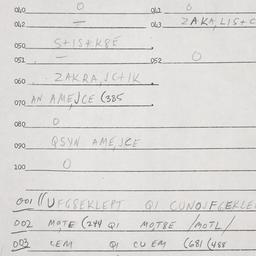 040 0 041 0
042 — 043 ZAKA, LIS+C
050 S+IS+K8E
051 — 052 0
060 · ZAKRA, JC+IK
070 AN AMEJCE (385
080 0
090 QSYN AMEJCE
100 0
001 UFGSEKLEPT QI CUNQJFGEKLE
002 MOTE (244 QI MOT8E /MOTL/
003 LEM QI CU EM (681 (488